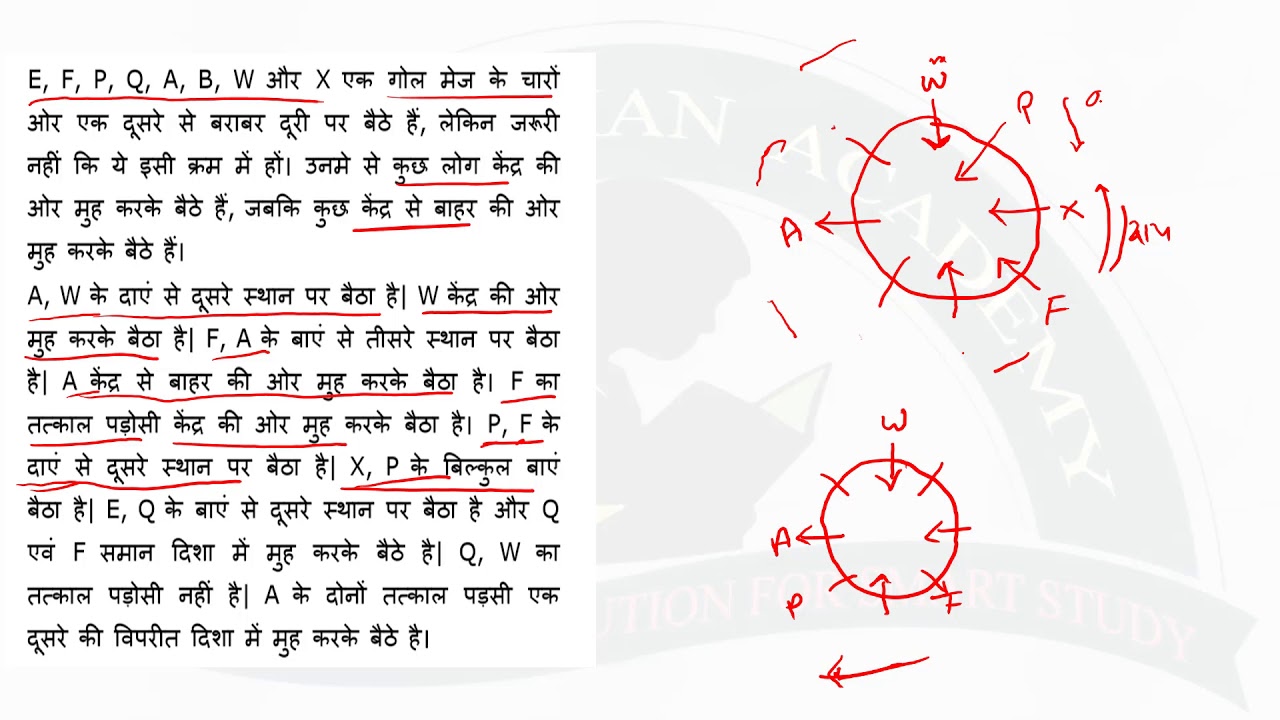 E, F, P, Q, A, B, W और X एक गोल मेज के चारों
ओर एक दूसरे से बराबर दूरी पर बैठे हैं, लेकिन जरूरी
नहीं कि ये इसी क्रम में हों। उनमे से कुछ लोग केंद्र की
ओर मुह करके बैठे हैं, जबकि कुछ केंद्र से बाहर की ओर
मुह करके बैठे हैं।
A, W के दाएं से दूसरे स्थान पर बैठा है| W केंद्र की ओर
मुह करके बैठा है| F, A के बाएं से तीसरे स्थान पर बैठा
है| A केंद्र से बाहर की ओर मुह करके बैठा है। F का
तत्काल पड़ोसी केंद्र की ओर मुह करके बैठा है। P, F के
दाएं से दूसरे स्थान पर बैठा है| X, P के बिल्कुल बाएं
बैठा है| E, Q के बाएं से दूसरे स्थान पर बैठा है और Q
एवं F समान दिशा में मुह करके बैठे है| Q, W का
तत्काल पड़ोसी नहीं है| A के दोनों तत्काल पड़सी एक
दूसरे की विपरीत दिशा में मुह करके बैठे है।
W
P
A
X
F
W
A
P
F
ACADEMY
FOR SMART STUDY